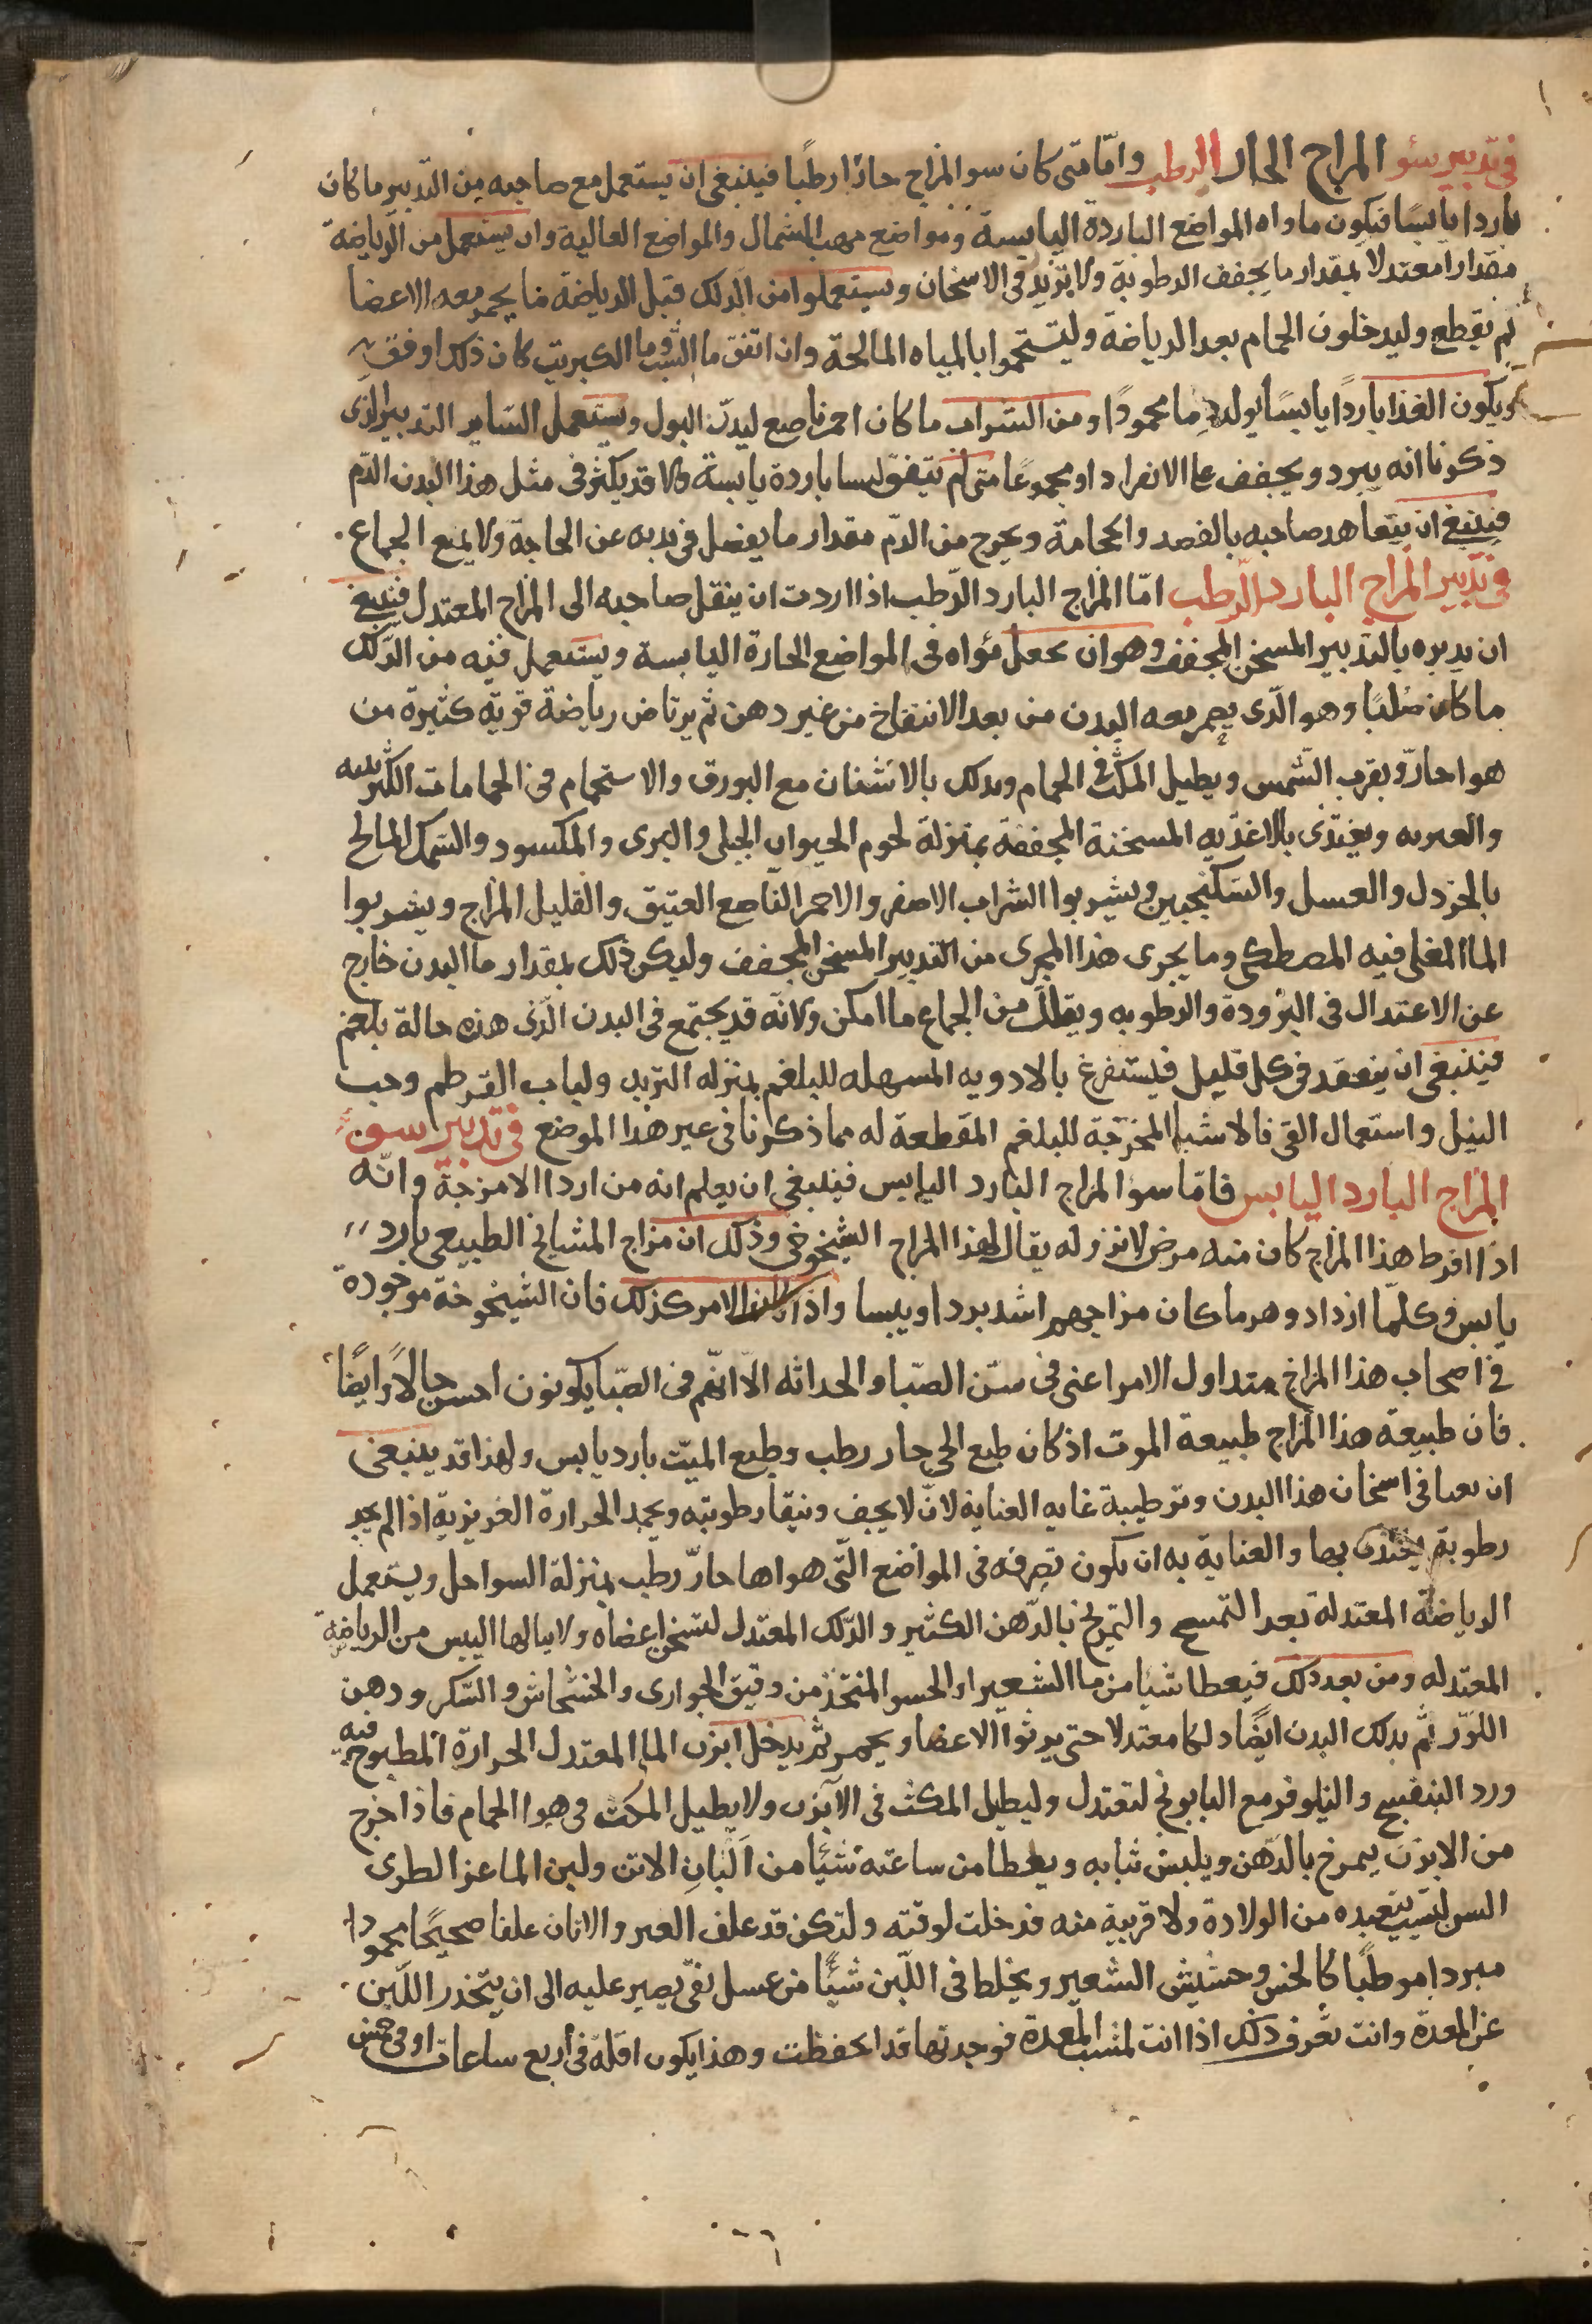 في تدبير سئو المزاج الحار الرطب وامّا متى كان سو المزاج حارًا رطبًا فينبغى ان يستعمل مع صاحبه من التدبير ما كان
باردا يابسًا فيكون ماواه المواضع الباردة اليابسة ومواضع مهب الشمال والمواضع العالية وان يستعمل من الرياضة
مقدارا معتدلا بمقدار ما يجفف الرطوبة ولا يزيد في الاسخان وسيتعملوا من الدلك قبل الرياضة ما يحمر معه الاعضا
ثم يقطع وليدخلون الحمام بعد الرياضة وليستحموا بالمياه المالحة وان اتفق ما الشب وما الكبريت كان ذلك اوفق
ويكون الغذا باردًا يابسًا يولد دما محمودًا ومن الشراب ما كان احمر ناصع ليدرّ البول ويستعمل الساير التدبير الذى
ذكرنا انه يبرد ويجفف على الانفراد او مجموعًا متى لم يتفق لبسا باردة يابسة ولا قد يكثر فى مثل هذا البدن الدّم
فينبغى ان يتعاهد صاحبه بالفصد والحجامة ويخرج من الدّم مقدار ما يفضل فى بدنه عن الحاجة ولا يمنع الجماع
فى تدبير المزاج البارد الرطب امّا المزاج البارد الرّطب اذا اردت ان ينقل صاحبه الى المزاج المعتدل فينبغى
ان يدبره بالتدبير المسخن المجفف وهو ان يجعل مئواه فى المواضع الحارة اليابسة ويستعمل فيه من الدّلك
ما كان صلبًا وهو الّذى يحمر معه البدن من بعد الانتفاخ من غير دهن ثم يرتاض رياضة قوية كثيرة من
هوا حارّ وبقرب الشّمس ويطيل المكث فى الحمام ويدلك بالاشنان مع البورق والاستحمام فى الحمامات الكبريتيه
ويغتذى بالاغذيه المسخنة المجففة بمنزلة لحوم الحيوان الجبلى والبرى والمكسود والسّمك المالح
بالخردل والعسل والسكنجبين ويشربوا الشراب الاصفر والاحمر النّاصع العتيق والقليل المزاج ويشربوا
الما المغلى فيه المصطكى وما يجرى هذا المجرى من التدبير المسخن المجفف وليكن ذلك بمقدار ما البدن خارج
عن الاعتدال فى البرودة والرطوبه ويقلل من الجماع ما امكن ولانه قد يجتمع فى البدن الّذى هذه حالة بلغم
فينبغى ان يتفقد فى كل قليل فيستفرغ بالادويه المسهله للبلغم بمنزله التربد ولباب القرطم وحب
النيل واستعمال القى فالاشيا المخرجة للبلغم المقطعة له مما ذكرنا فى غير هذا الموضع فى تدبير سوء
المزاج البارد اليابس فامّا سوا المزاج البارد اليابس فينبغى ان يعلم انه من اردا الامزجة وانّه
اذا افرط هذا المزاج كان منه مرض لا برؤ له يقال لهذا المزاج الشيخوخى وذلك ان مزاج المشايخ الطبيعى بارد
يابس وكلّما ازداد وهرما كان مزاجهم اشد بردا ويبسا واذا كان الامر كذلك فان الشيخوخة موجودة
فى اصحاب هذا المزاج منذ اول الامر اعنى فى سنّ الصّبا والحداثه الّا انّهم فى الصّبا يكونون احسن حالًا وايضًا
فان طبيعة هذا المزاج طبيعة الموت اذ كان طبع الحى حار رطب وطبع الميّت بارد يابس ولهذا قد ينبغى
ان يعنا فى اسخان هذا البدن وترطيبة غايه العناية لانّ لا يجف وتنقا رطوبته ويجمد الحرارة الغريزية اذا لم يجد
رطوبة يغتذى بها والعناية به ان يكون تصرفه فى المواضع الّتى هواها حارّ رطب بمنزلة السواحل ويستعمل
الرياضة المعتدلة بعد التمسح والتمرلخ بالدّهن الكثير والدّلك المعتدل لتسخن اعضاه ولا ينالها اليبس من الرياضة
المعتدله ومن بعد ذلك فيعطا شيا من ما الشعير او الحسو المتخذ من دقيق الحوارى والخشخاش والسّكر ودهن
اللوز ثم يدلك البدن ايضًا دلكا معتدلا حتى يربوا الاعضا ويحمر ثم يدخل ابزن الما المعتدل الحرارة المطبوخ فيه
ورد البنفسج والنيلوفر مع البابونج لتعتدل وليطيل المكث فى الآبزن ولا يطيل المكث فى هوا الحمام فاذا خرج
من الابزن يمرخ بالدّهن ويلبس ثيابه ويعطا من ساعته شيئًا من البان الاتن ولبن الماعز الطرى
السن ليست ببعيده من الولادة ولا قريبة منه فدخلت لوقته ولتكن قد علف العنز والاتان علفا صحيحًا محمودا
مبردا مرطبًا كالخس وحشيش الشعير ويخلط فى اللّبن شيئًا من عسل نقى يصير عليه الى ان يتحدر اللّبن
عن المعدّة وانت تعرف ذلك اذا انت لمست المعدة فوجدتها قد انخفظت وهذا يكون اقلّه فى أربع ساعات او فى خمس